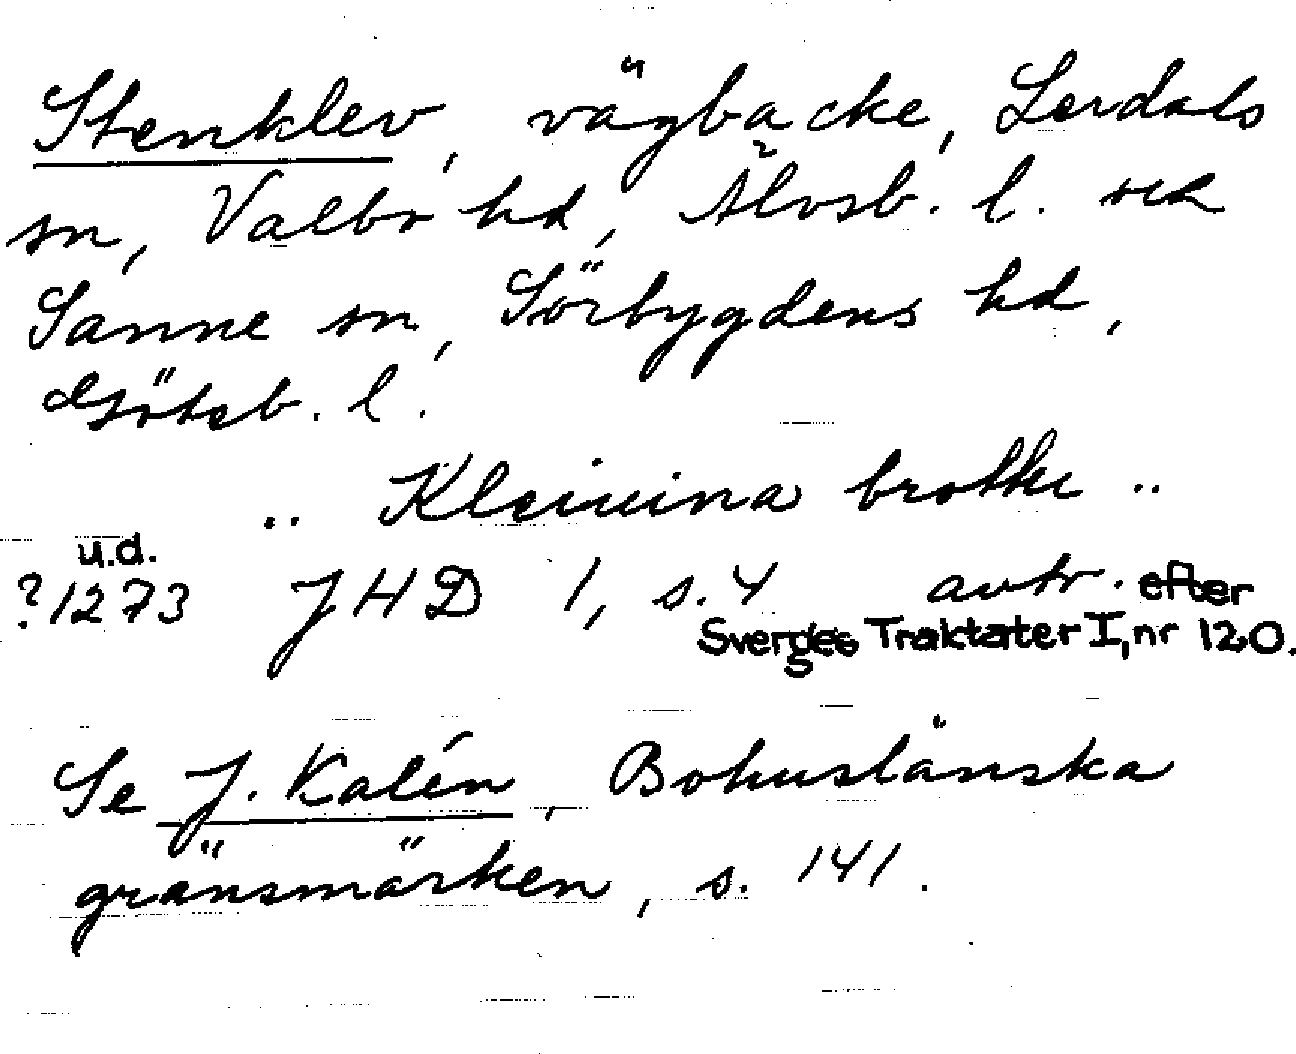 Stenklev, vägbacke, Lerdals
sn, Valbo hd, Älvsb. l. och
Sanne sn, Sörbygdens hd,
Göteb. l.
.. Kleiuina brotthe ..
u.d.
?1273 JHD 1, s. 4 avtr. efter
Sverges Traktater I, nr 120.
Se J. Kalén, Bohuslänska
gränsmärken, s. 141.